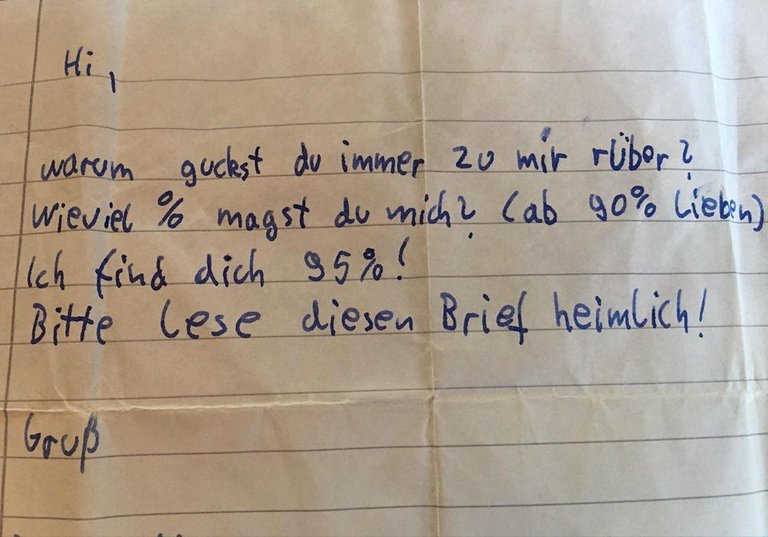 Hi,
warum guckst du immer zu mir rüber?
Wieviel % magst du mich? (ab 90% Lieben)
Ich find dich 95%!
Bitte lese diesen Brief heimlich!
Gruß